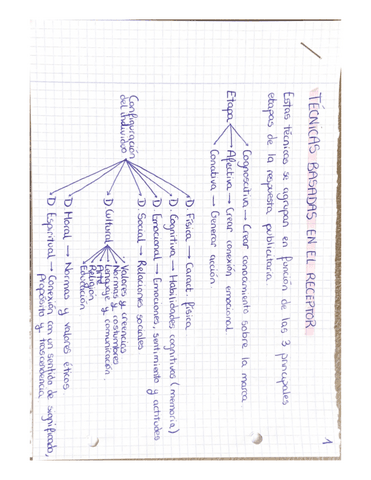 1
TÉCNICAS BASADAS EN EL RECEPTOR
Estas técnicas se agrupan en función de las 3 principales
etapas de la respuesta publicitaria.
Cognoscitiva → Crear conocimiento sobre la marca
Etapa → Afectiva → Crear conexión emocional
Conativa → Generar acción
D Física → Caract. física
D Cognitiva → Habilidades cognitivas (memoria)
D Emocional → Emociones, sentimiento y actitudes
D Social → Relaciones sociales
Configuración
del individuo
Valores y creencias
Normas y costumbres
D Cultural Lenguaje y comunicación
Arte
Religión
Educación
D Moral → Normas y valores éticos
D Espiritual → Conexión con un sentido de significado,
Propósito y trascendencia.